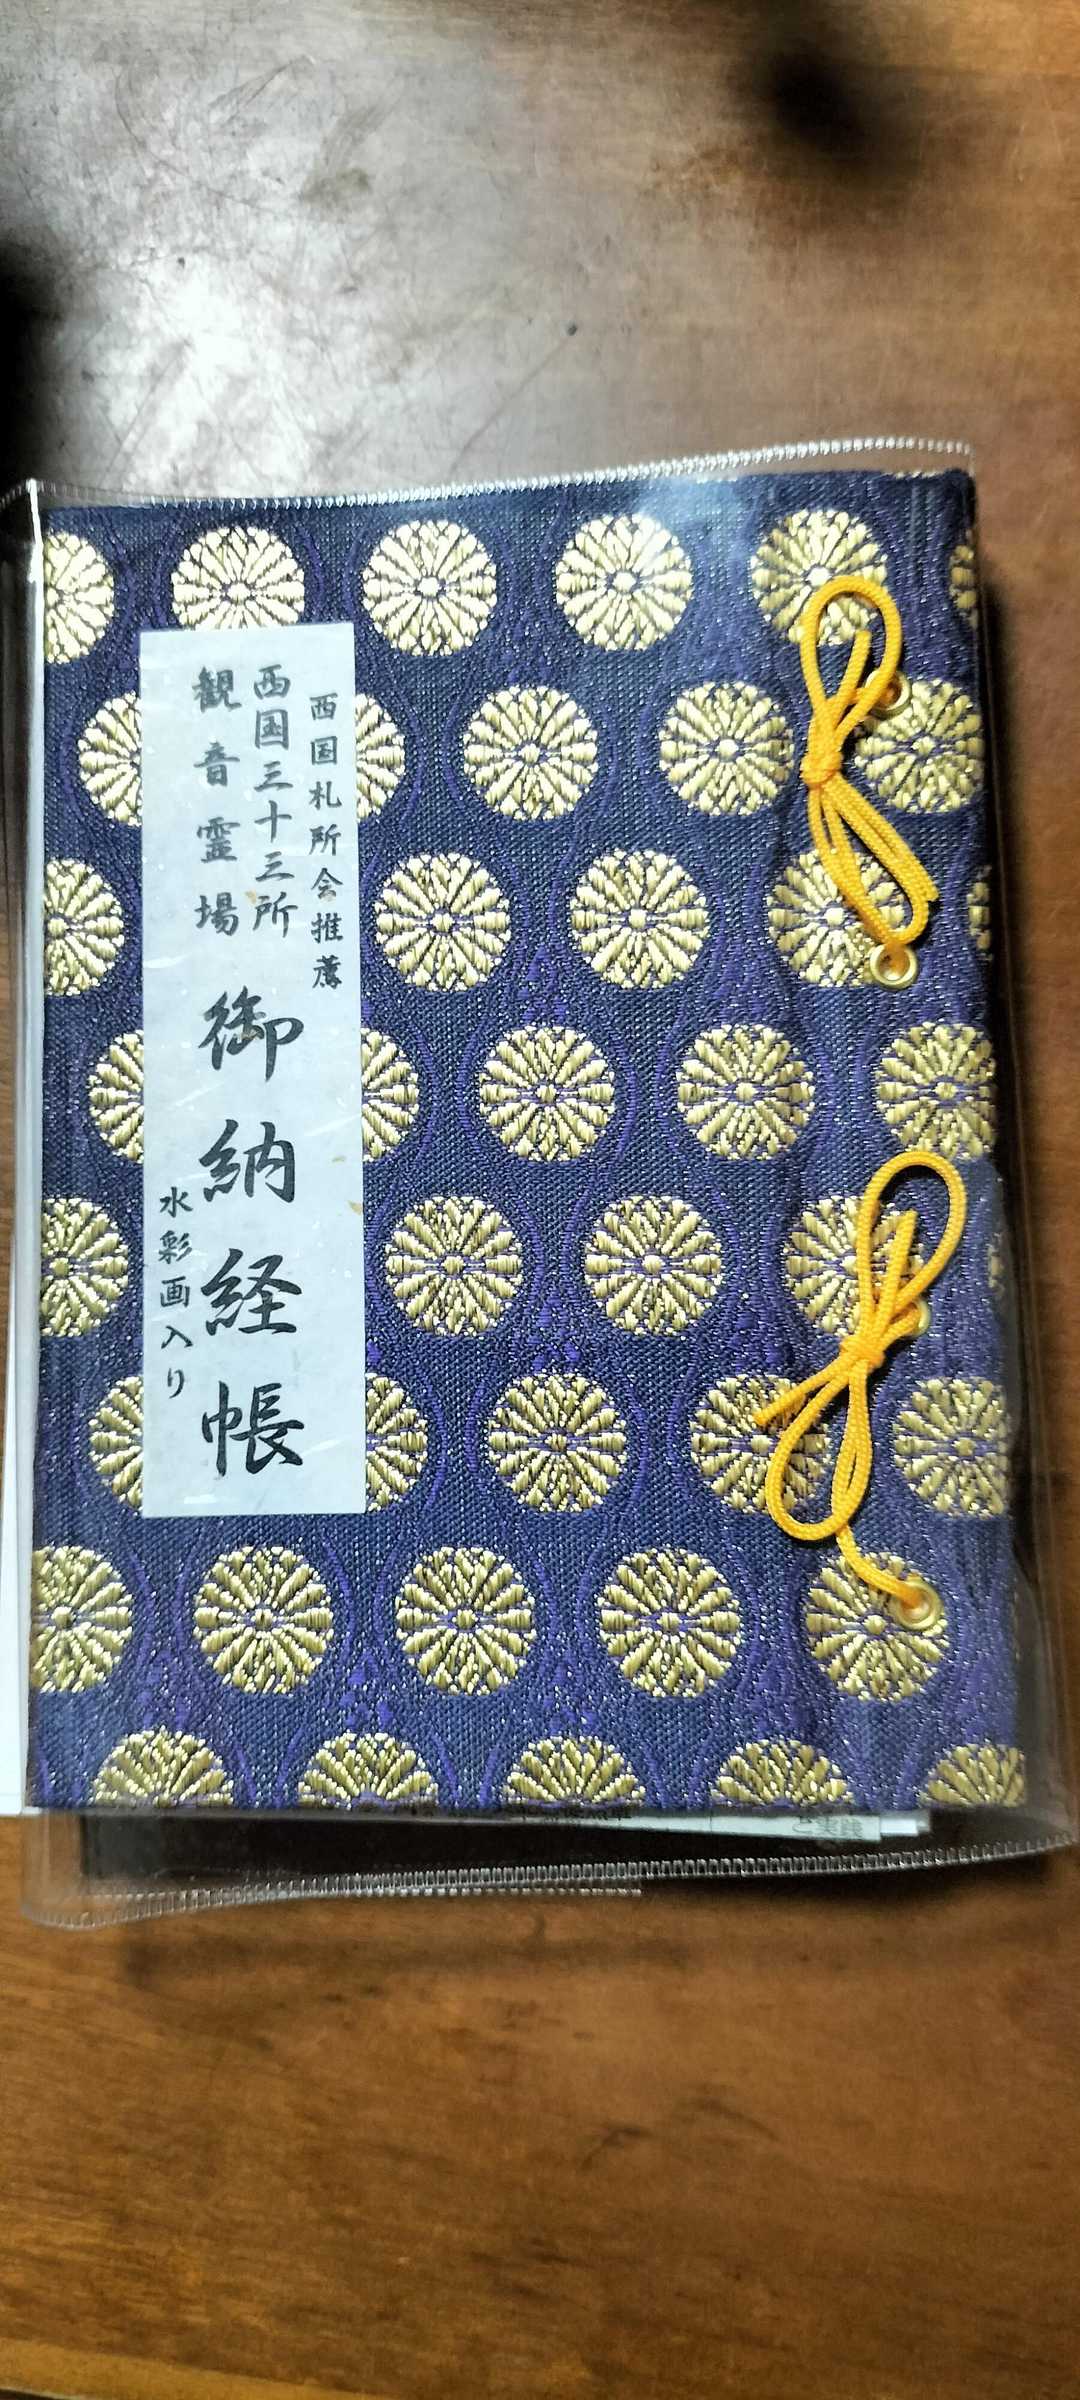 西国札所会推薦
西国三十三所
観音霊場
御納経帳
水彩画入り
と実践